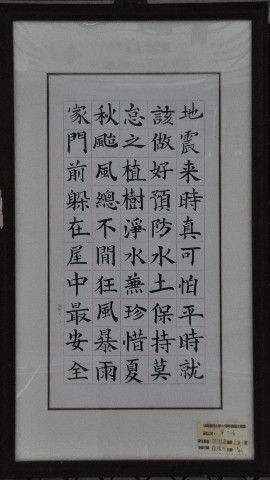 地震来時真可怕平時就
該做好預防水土保持莫
怠之植樹淨水兼珍惜夏
秋颱風總不間狂風暴雨
家門前躲在屋中最安全